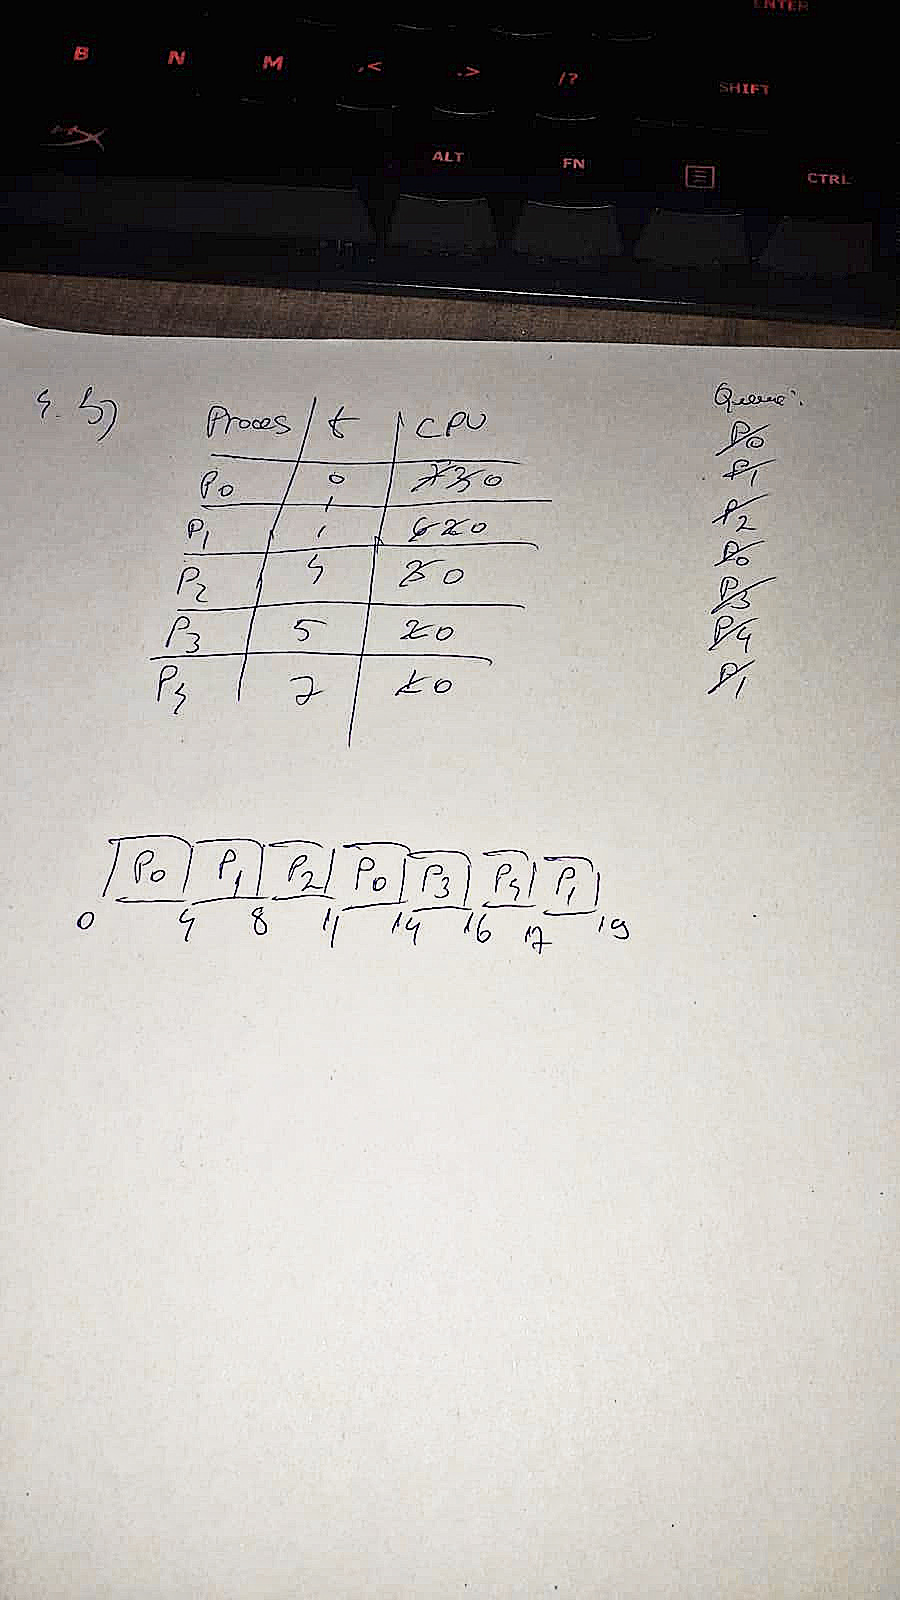 ENTER
B N M ,< .> /? SHIFT
ALT FN CTRL
4. b)
Proces t CPU
P0 0 7 3 0
P1 1 6 2 0
P2 4 3 0
P3 5 2 0
P4 7 1 0
Queue:
P0
P1
P2
P0
P3
P4
P1
P0 P1 P2 P0 P3 P4 P1
0 4 8 11 14 16 17 19